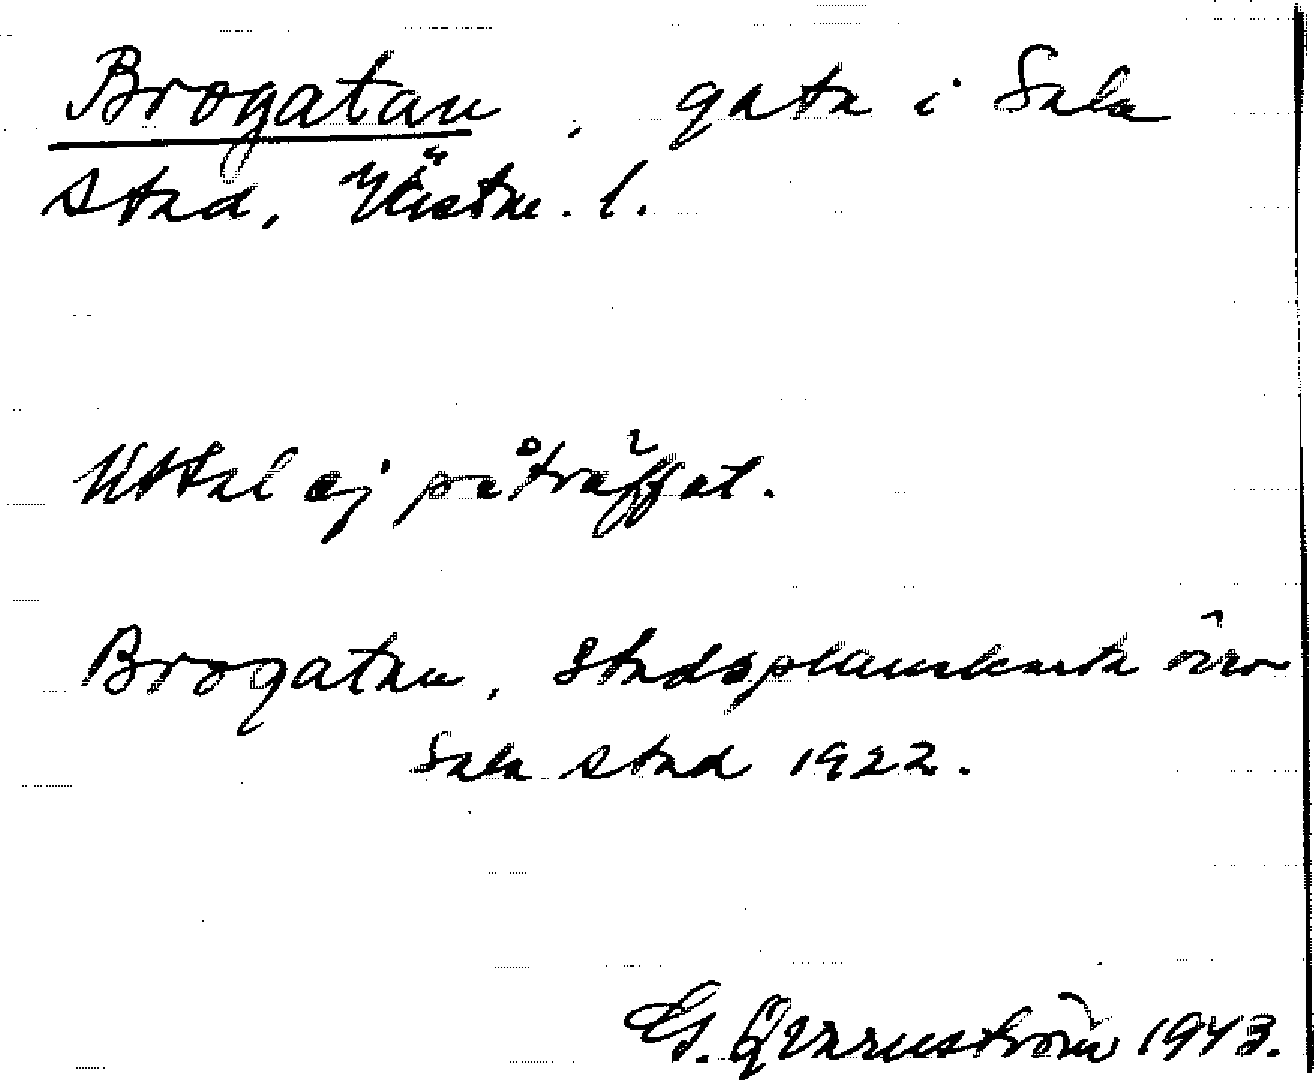 Brogatan, gata i Sala
stad, Västm. l.
Uttal ej påträffat.
Brogatan, Stadsplanekarta över
Sala stad 1922.
G. Qvarnström 1943.